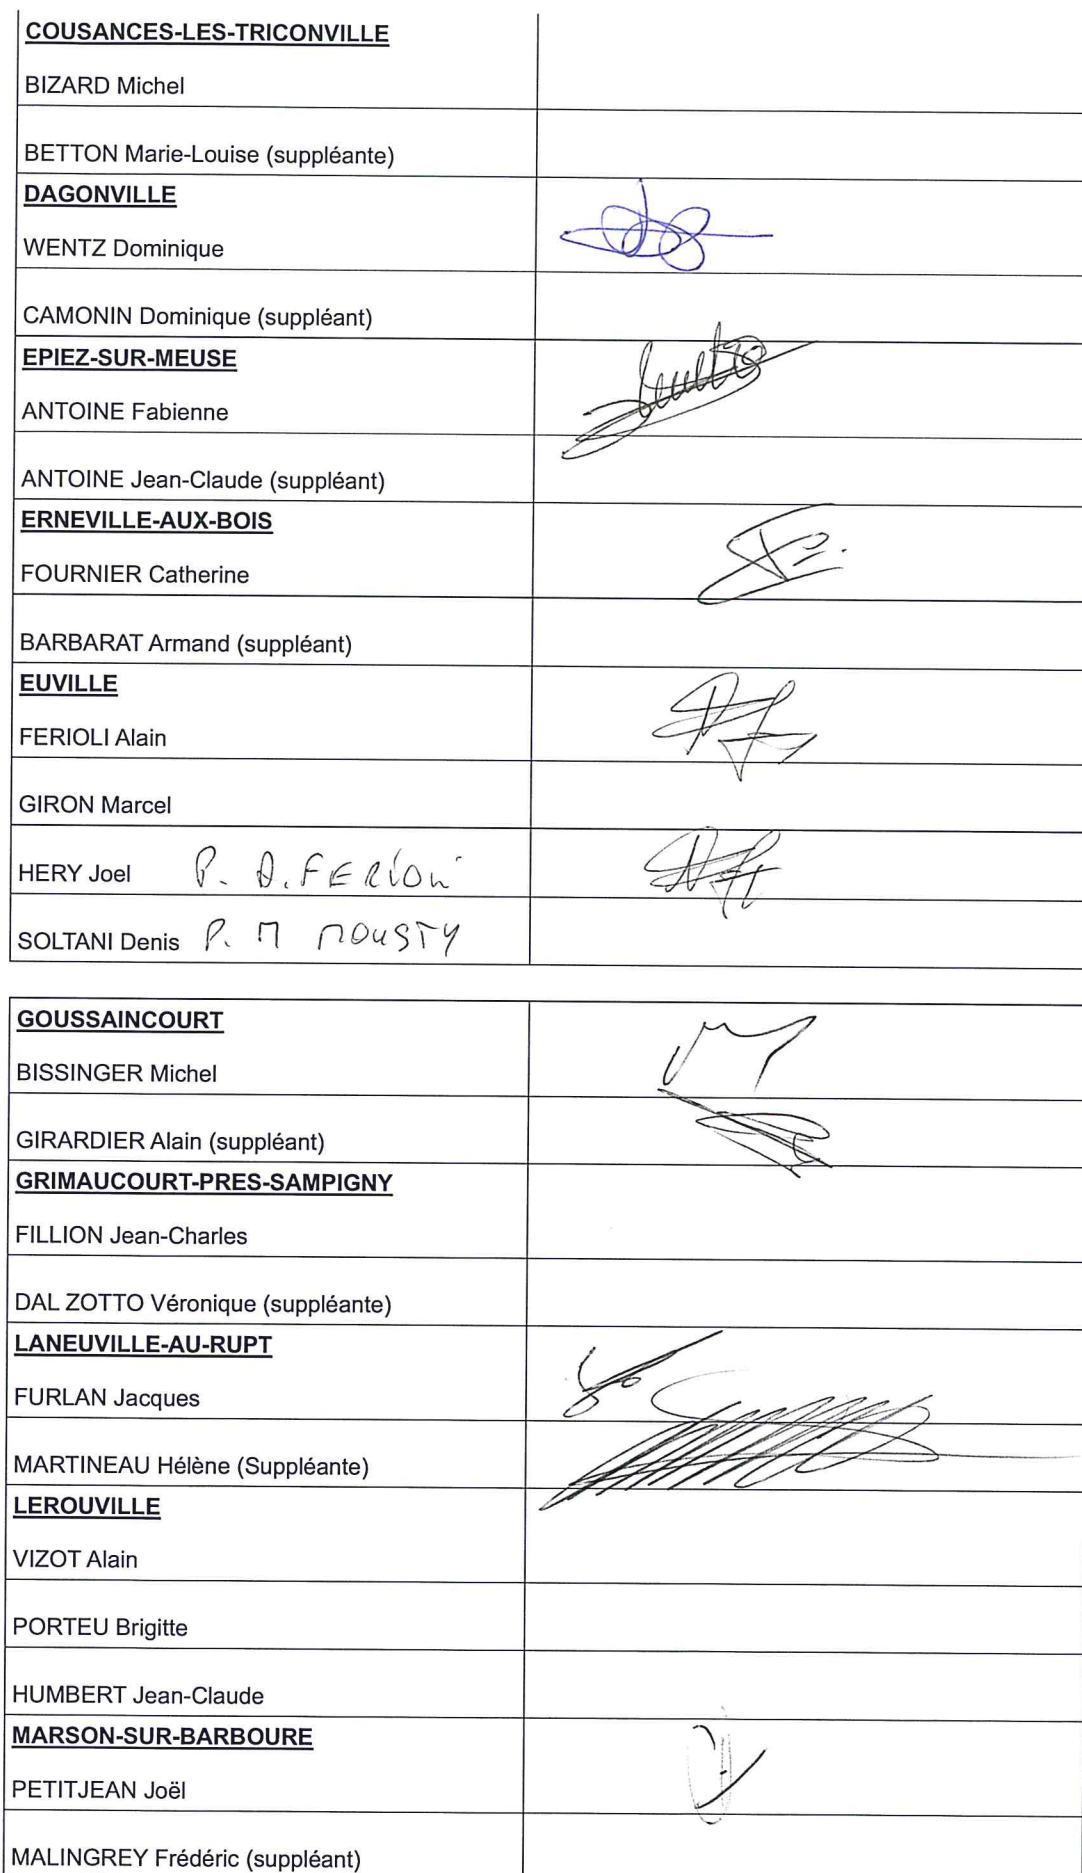 COUSANCES-LES-TRICONVILLE
BIZARD Michel
BETTON Marie-Louise (suppléante)
DAGONVILLE
WENTZ Dominique
CAMONIN Dominique (suppléant)
EPIEZ-SUR-MEUSE
ANTOINE Fabienne
ANTOINE Jean-Claude (suppléant)
ERNEVILLE-AUX-BOIS
FOURNIER Catherine
BARBARAT Armand (suppléant)
EUVILLE
FERIOLI Alain
GIRON Marcel
HERY Joel P. A. FERIOLI
SOLTANI Denis P. M MOUSTY
GOUSSAINCOURT
BISSINGER Michel
GIRARDIER Alain (suppléant)
GRIMAUCOURT-PRES-SAMPIGNY
FILLION Jean-Charles
DAL ZOTTO Véronique (suppléante)
LANEUVILLE-AU-RUPT
FURLAN Jacques
MARTINEAU Hélène (Suppléante)
LEROUVILLE
VIZOT Alain
PORTEU Brigitte
HUMBERT Jean-Claude
MARSON-SUR-BARBOURE
PETITJEAN Joël
MALINGREY Frédéric (suppléant)